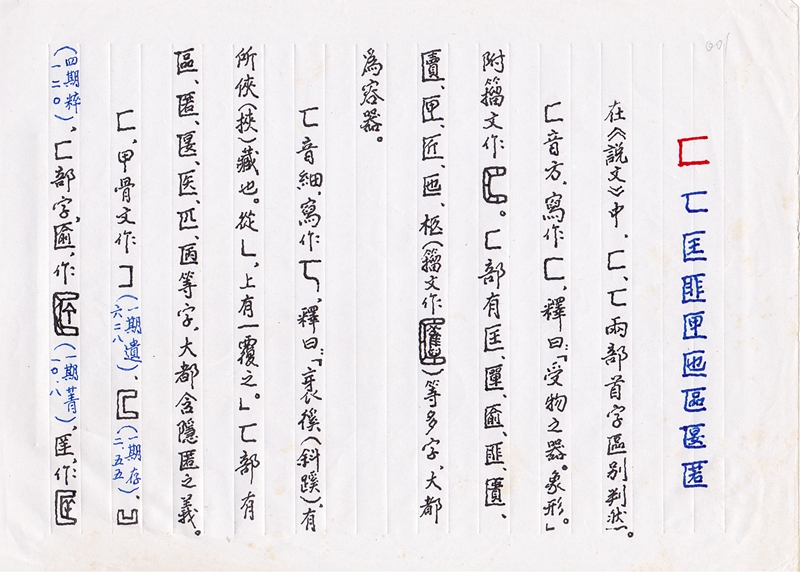 001
匚 匸 匡 匪 匣 匜 區 匽 匿
在《說文》中，匚、匸兩部首字區別判然。
匚音方，寫作匚，釋曰：「受物之器。象形。」
附籀文作。匚部有匡、匰、匬、匪、匱、
匵、匣、匠、匜、柩（籀文作）等多字，大都
為容器。
匸音細，寫作匸，釋曰：「衺徯（斜蹊），有
所俠（挾）藏也。從乚，上有一覆之。」匸部有
區、匿、匽、医、匹、匧等字，大都含隱匿之義。
匚，甲骨文作（一期遺六二八）、匚（一期存二.五五）、
（四期粹一二〇），匚部字，匬，作（一期菁一〇.八），匡，作